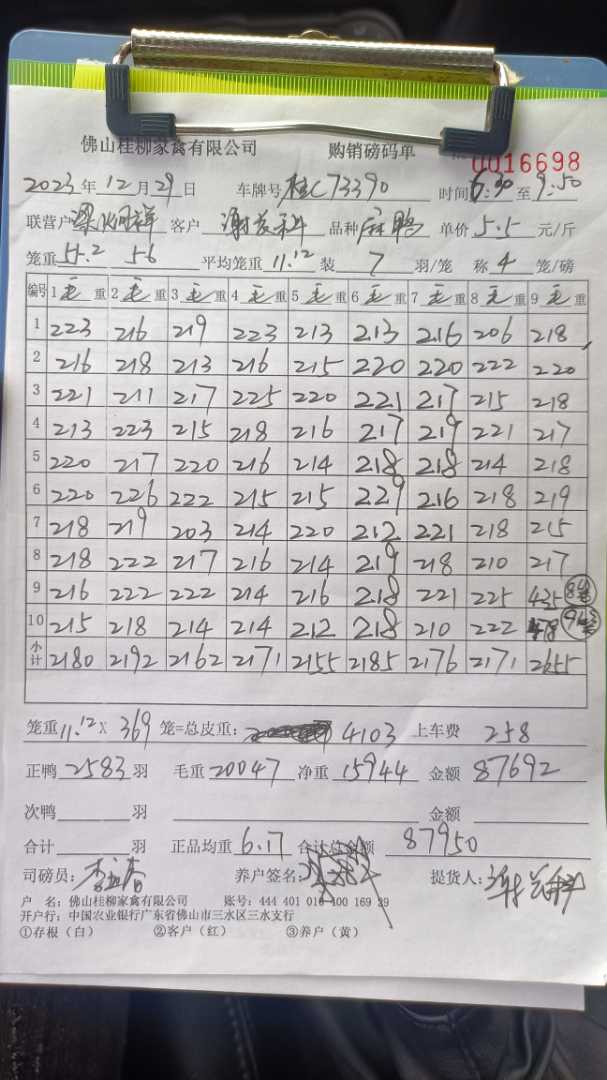 佛山桂柳家禽有限公司 购销磅码单 0016698
2023年12月29日 车牌号桂C73390 时间6:30至9:50
联营户梁炯祥 客户谢茂科 品种麻鸭 单价5.5元/斤
笼重 56 平均笼重11.12装7羽/笼 称4笼/磅
编号 1毛重 2毛重 3毛重 4毛重 5毛重 6毛重 7毛重 8毛重 9毛重
1 223 216 219 223 213 213 216 206 218
2 216 218 213 216 215 220 220 222 220
3 221 211 217 225 220 221 217 215 218
4 213 223 215 218 216 217 219 221 217
5 220 217 220 216 214 218 218 214 218
6 220 226 222 215 215 229 216 218 219
7 218 219 203 214 220 212 221 218 215
8 218 222 217 216 214 219 218 210 217
9 216 222 222 214 216 218 221 225 435 8笼
10 215 218 214 214 212 218 210 222 478 9笼
小计 2180 2192 2162 2171 2155 2185 2176 2171 2655
笼重11.12X369笼=总皮重: 4103 上车费 258
正鸭2583羽 毛重20047 净重15944 金额87692
次鸭 羽 金额
合计 羽 正品均重6.17 合计总金额 87950
司磅员: 养户签名: 提货人:谢茂科
户 名: 佛山桂柳家禽有限公司 账号: 444 401 010 400 169 39
开户行: 中国农业银行广东省佛山市三水区三水支行
①存根(白) ②客户(红) ③养户(黄)